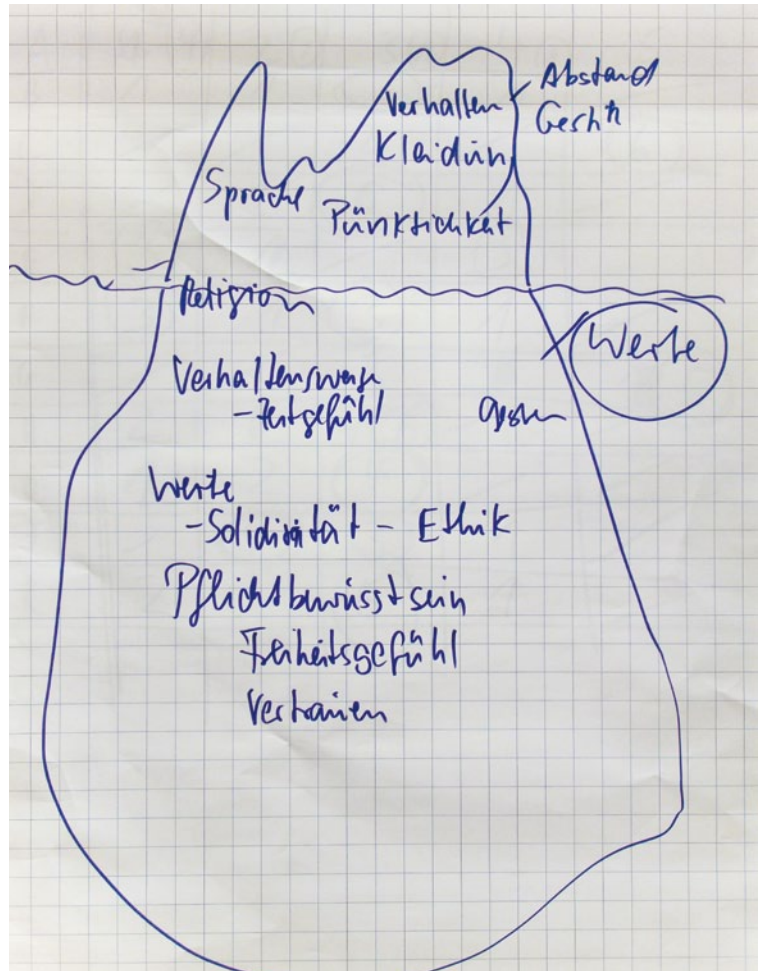 Abstand
Verhalten
Kleidun
Sprache
Pünktlichkeit
Religion
Werte
Verhaltensweise
- Zeitgefühl
Werte
- Solidarität - Ethik
Pflichtbewusstsein
Freiheitsgefühl
Vertrauen